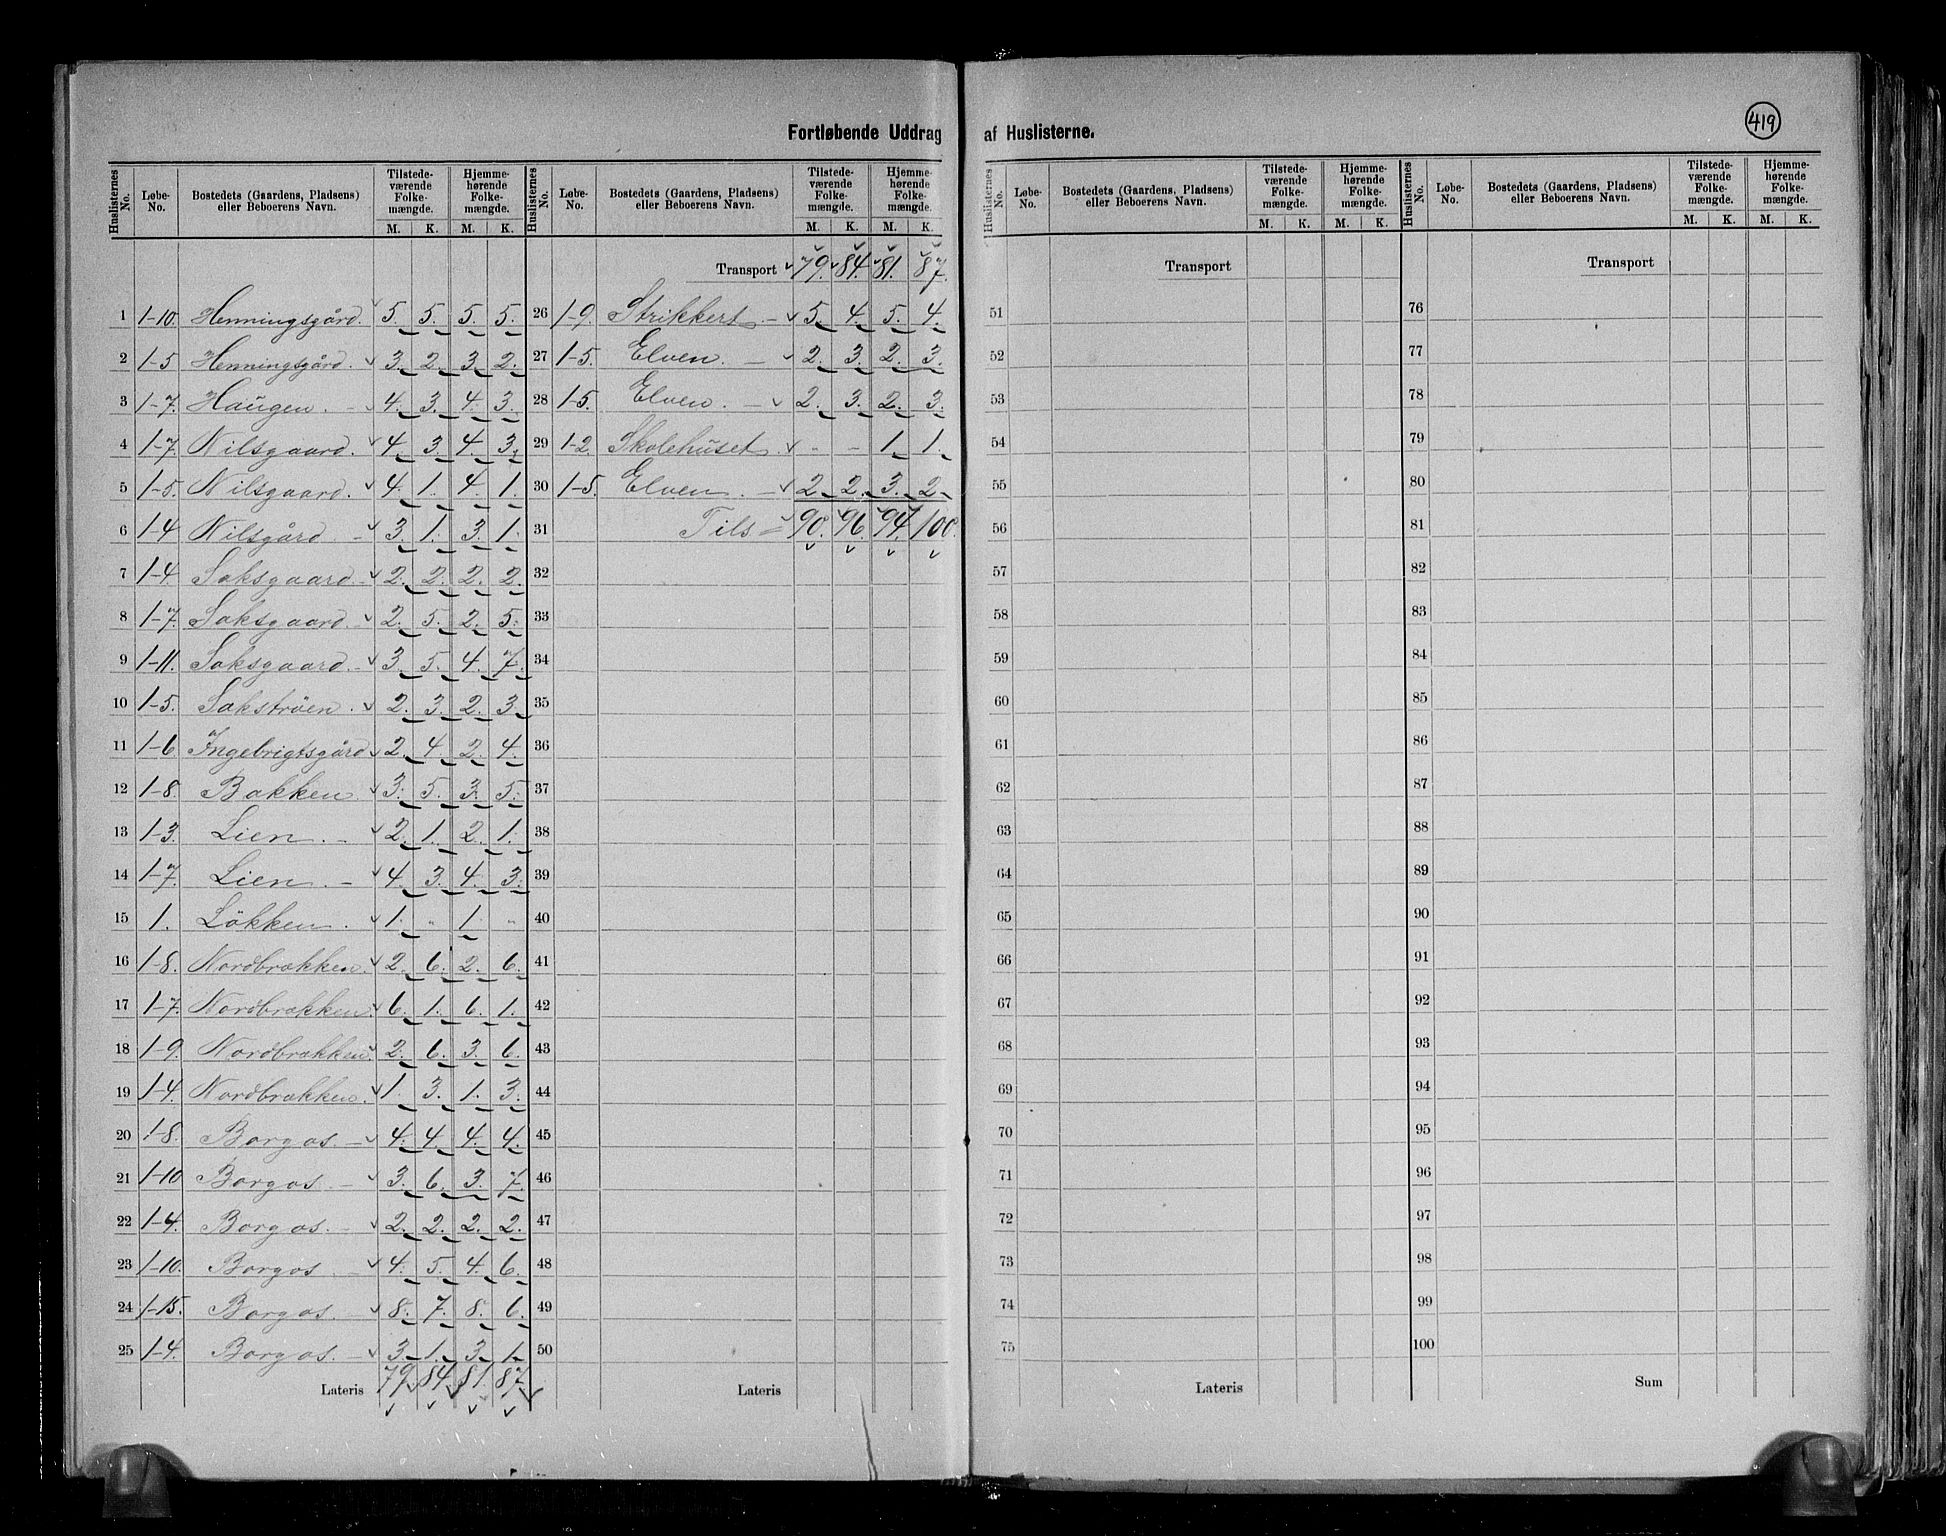 Fortløbende Uddrag af Huslisterne.
419
Huslisternes No. | Løbe-No. | Bostedets (Gaardens, Pladsens) eller Beboerens Navn. | Tilstedeværende Folkemængde. M. K. | Hjemmehørende Folkemængde. M. K.
1 1-10. Henningsgård. 5. 5. 5. 5.
2 1-5 Henningsgård. 3. 2. 3. 2.
3 1-7. Haugen. 4. 3. 4. 3.
4 1-7. Nilsgaard. 4. 3. 4. 3.
5 1-5. Nilsgaard. 4. 1. 4. 1.
6 1-4 Nilsgård 3. 1. 3. 1.
7 1-4. Saksgaard. 2. 2. 2. 2.
8 1-7. Saksgaard. 2. 5. 2. 5.
9 1-11. Saksgaard. 3. 5. 4. 7.
10 1-5. Sakstrøen. 2. 3. 2. 3.
11 1-6 Ingebrigtsgård 2. 4. 2. 4.
12 1-8. Bakken. 3. 5. 3. 5.
13 1-3. Lien. 2. 1. 2. 1.
14 1-7. Lien. 4. 3. 4. 3.
15 1. Lökken. 1. " 1. "
16 1-8. Nordbrækken. 2. 6. 2. 6.
17 1-7. Nordbrækken. 6. 1. 6. 1.
18 1-9. Nordbrækken. 2. 6. 3. 6.
19 1-4. Nordbrækken. 1. 3. 1. 3.
20 1-8. Borgos. 4. 4. 4. 4.
21 1-10 Borgos. 3. 6. 3. 7.
22 1-4. Borgos. 2. 2. 2. 2.
23 1-10. Borgos. 4. 5. 4. 6.
24 1-15. Borgos. 8. 7. 8. 6.
25 1-4. Borgos. 3. 1. 3. 1.
Lateris 79. 84. 81. 87.
Huslisternes No. | Løbe-No. | Bostedets (Gaardens, Pladsens) eller Beboerens Navn. | Tilstedeværende Folkemængde. M. K. | Hjemmehørende Folkemængde. M. K.
Transport 79. 84. 81. 87.
26 1-9. Strikkert. 5. 4. 5. 4.
27 1-5. Elven. 2. 3. 2. 3.
28 1-5. Elven. 2. 3. 2. 3.
29 1-2. Skolehuset. - - 1. 1.
30 1-5. Elven. 2. 2. 3. 2
31 Tils = 90. 96. 94. 100.
32
33
34
35
36
37
38
39
40
41
42
43
44
45
46
47
48
49
50
Lateris
Huslisternes No. | Løbe-No. | Bostedets (Gaardens, Pladsens) eller Beboerens Navn. | Tilstedeværende Folkemængde. M. K. | Hjemmehørende Folkemængde. M. K.
Transport
51
52
53
54
55
56
57
58
59
60
61
62
63
64
65
66
67
68
69
70
71
72
73
74
75
Lateris
Huslisternes No. | Løbe-No. | Bostedets (Gaardens, Pladsens) eller Beboerens Navn. | Tilstedeværende Folkemængde. M. K. | Hjemmehørende Folkemængde. M. K.
Transport
76
77
78
79
80
81
82
83
84
85
86
87
88
89
90
91
92
93
94
95
96
97
98
99
100
Sum